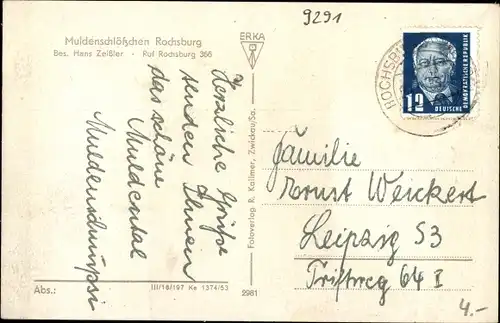 9291
Muldenschlößchen Rochsburg
Bes. Hans Zeißler - Ruf Rochsburg 368
ERKA
12
DEUTSCHE
DEMOKRATISCHE REPUBLIK
Herzliche Grüße
senden Ihnen
das schöne
Muldental
Fotoverlag R. Kallmer, Zwickau/Sa.
Familie
Ernst Weickert
Leipzig S3
Triftweg 64 I
4.-
Abs.:
III/18/197 Ka 1374/53
2981